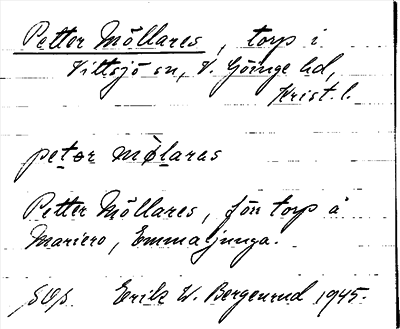 Petter Möllares, torp i
Vittsjö sn, V. Göinge hd,
Krist. l.
petər mølaras
Petter Möllares, fön torp å
Mariero, Emmaljunga.
Erik W. Bergenrud 1945.